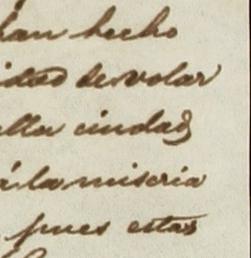 han hecho
idad de volar
ella ciudad
á la miseria
pues estas